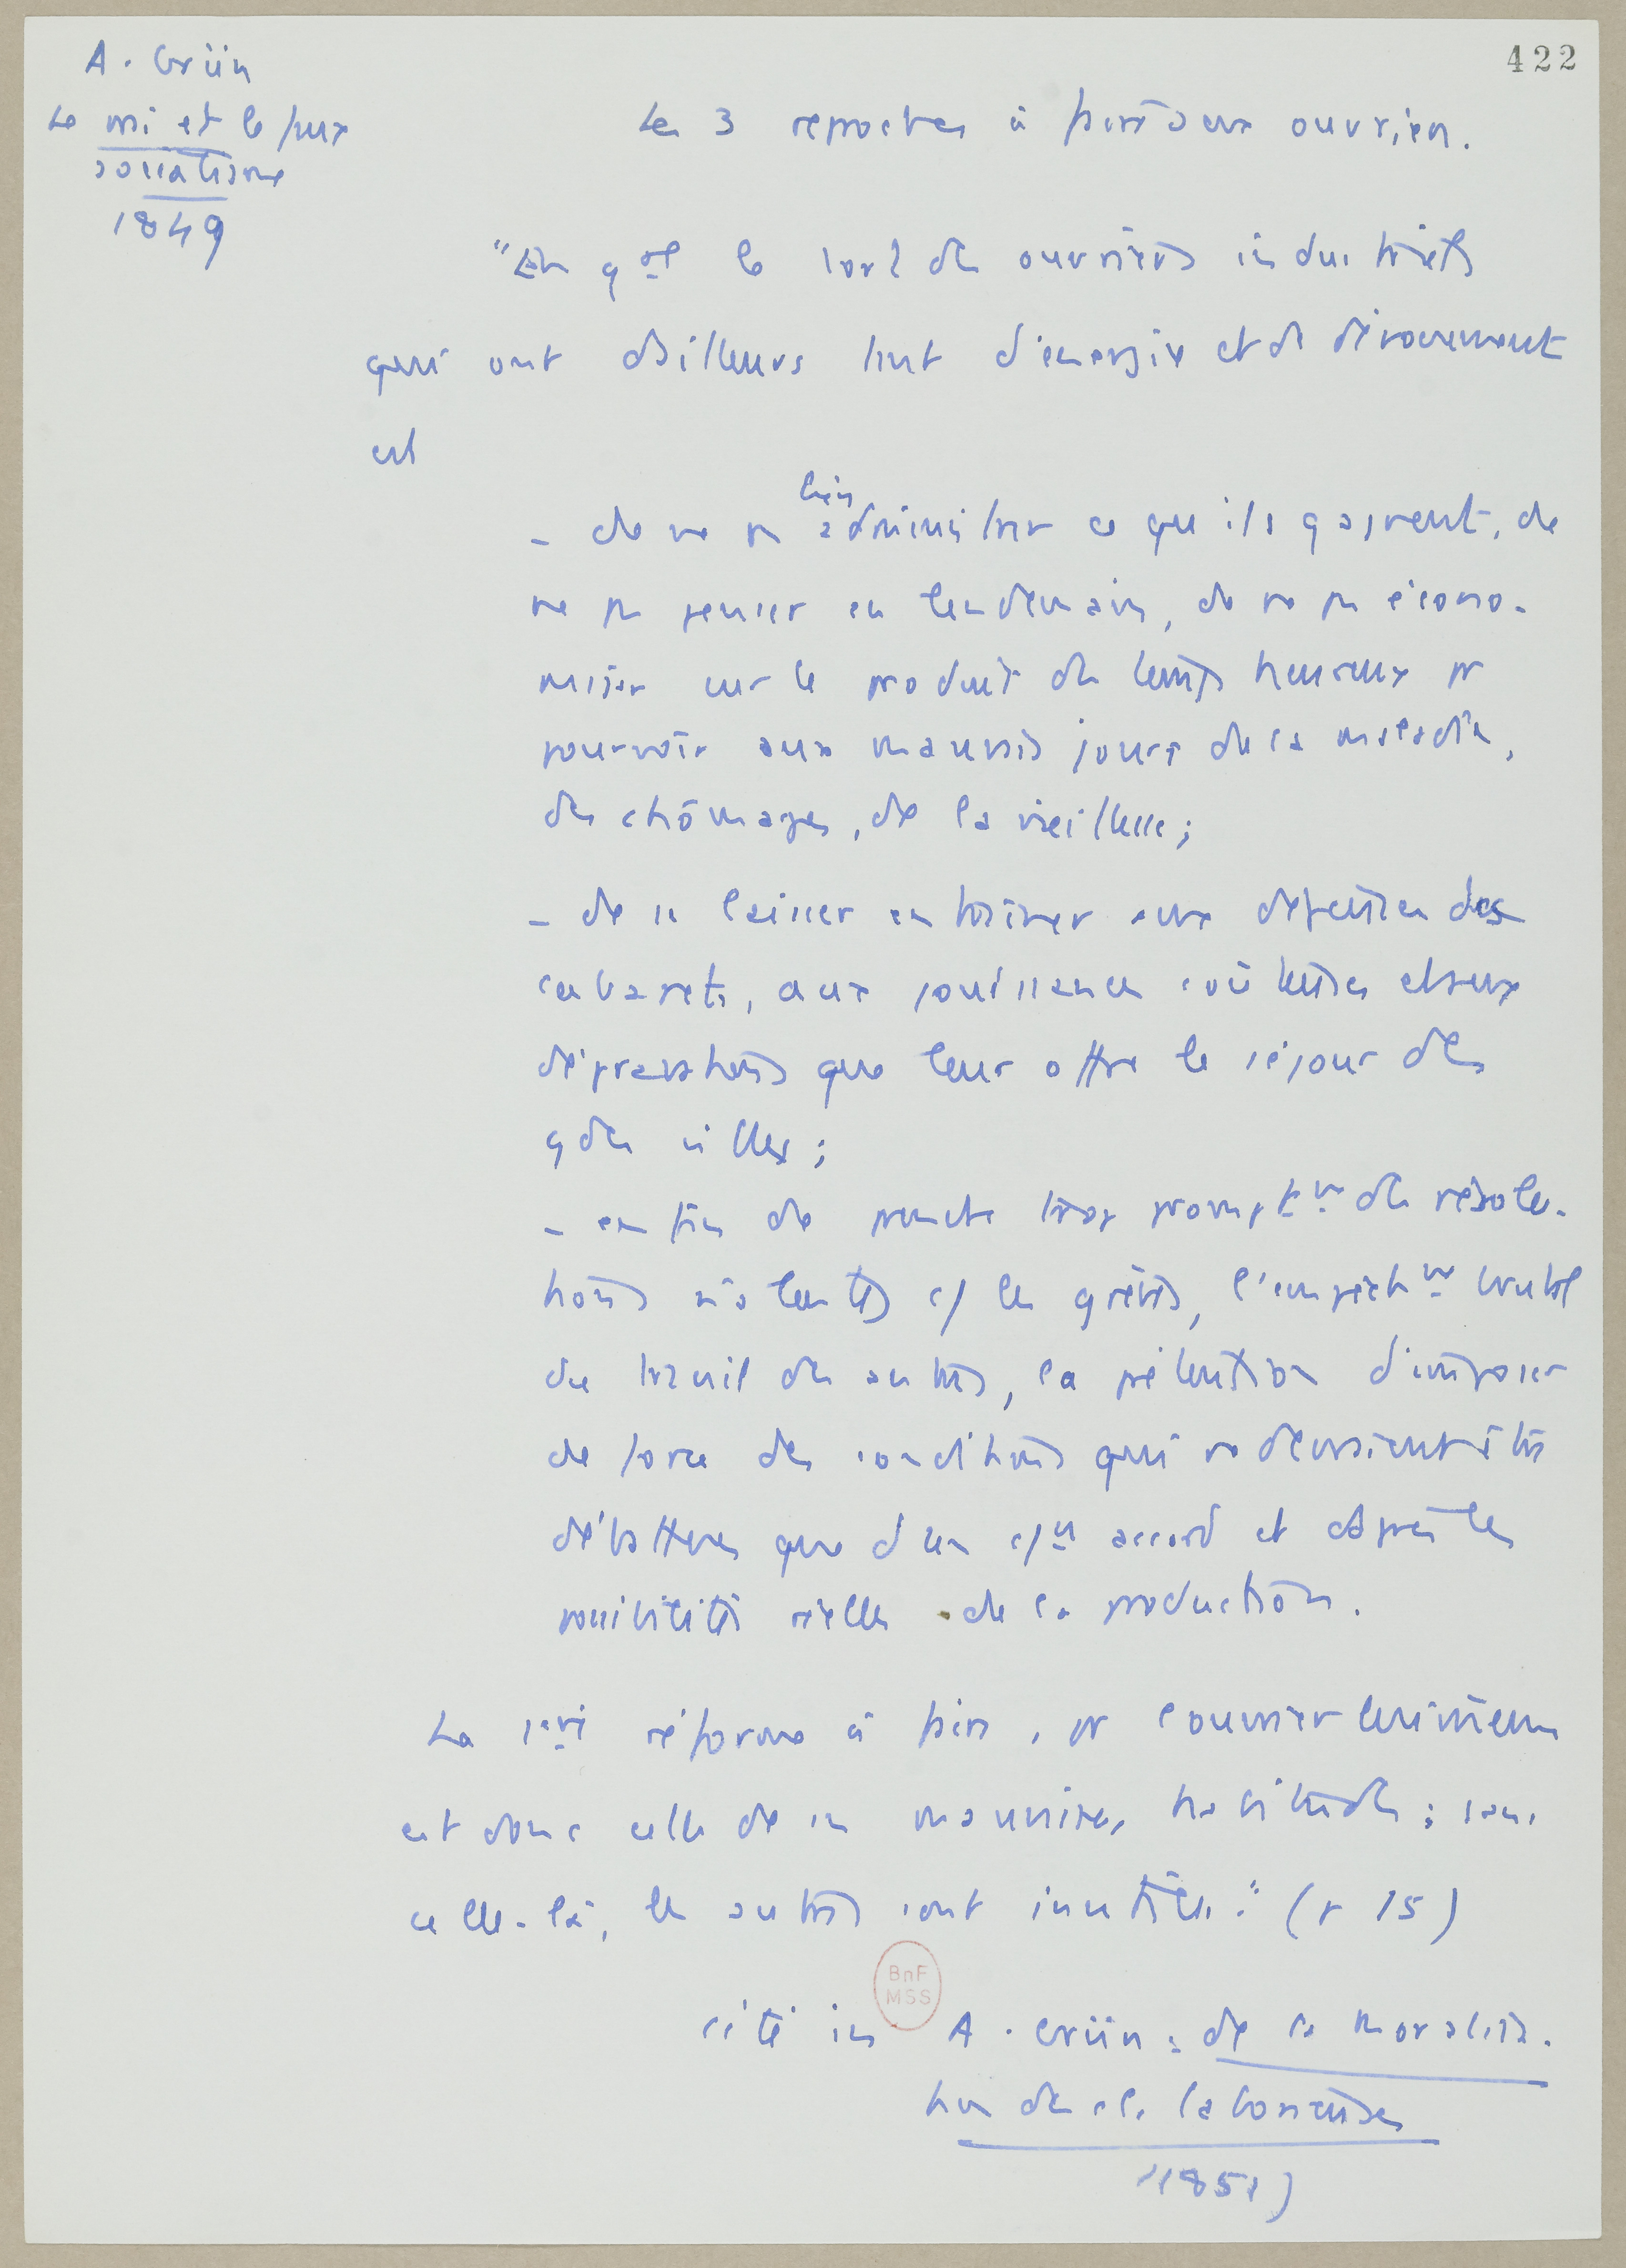 422
A. Grün
Le vrai et le faux
socialisme
1849
Les 3 reproches à faire aux ouvriers.
"En gal le tort des ouvriers industriels
qui ont d'ailleurs tant d'énergie et de dévouement
est
- de ne pas bien administrer ce qu'ils gagnent, de
ne pas penser au lendemain, de ne pas écono-
miser sur le produit des temps heureux pr
pourvoir aux mauvais jours de la maladie,
des chômages, de la vieillesse;
- de se laisser entraîner aux dépenses des
cabarets, aux jouissances coûteuses et aux
dépravations que leur offre le séjour des
gdes villes;
- enfin de prendre trop promptmt des résolu-
tions violentes c/ les grèves, l'empêchmt brutal
du travail des autres, la prétention d'imposer
de force des conditions qui ne devraient être
débattues que d'un c/un accord et d'après les
possibilités réelles de la production.
La 1ère réforme à faire, pr l'ouvrier lui-même
est donc celle de ses mauvaises habitudes; sans
celle-là, les autres sont inutiles." (p 15)
BnF
MSS
cité in A. Grün : de la moralisa-
tion des cl. laborieuses
(1851)